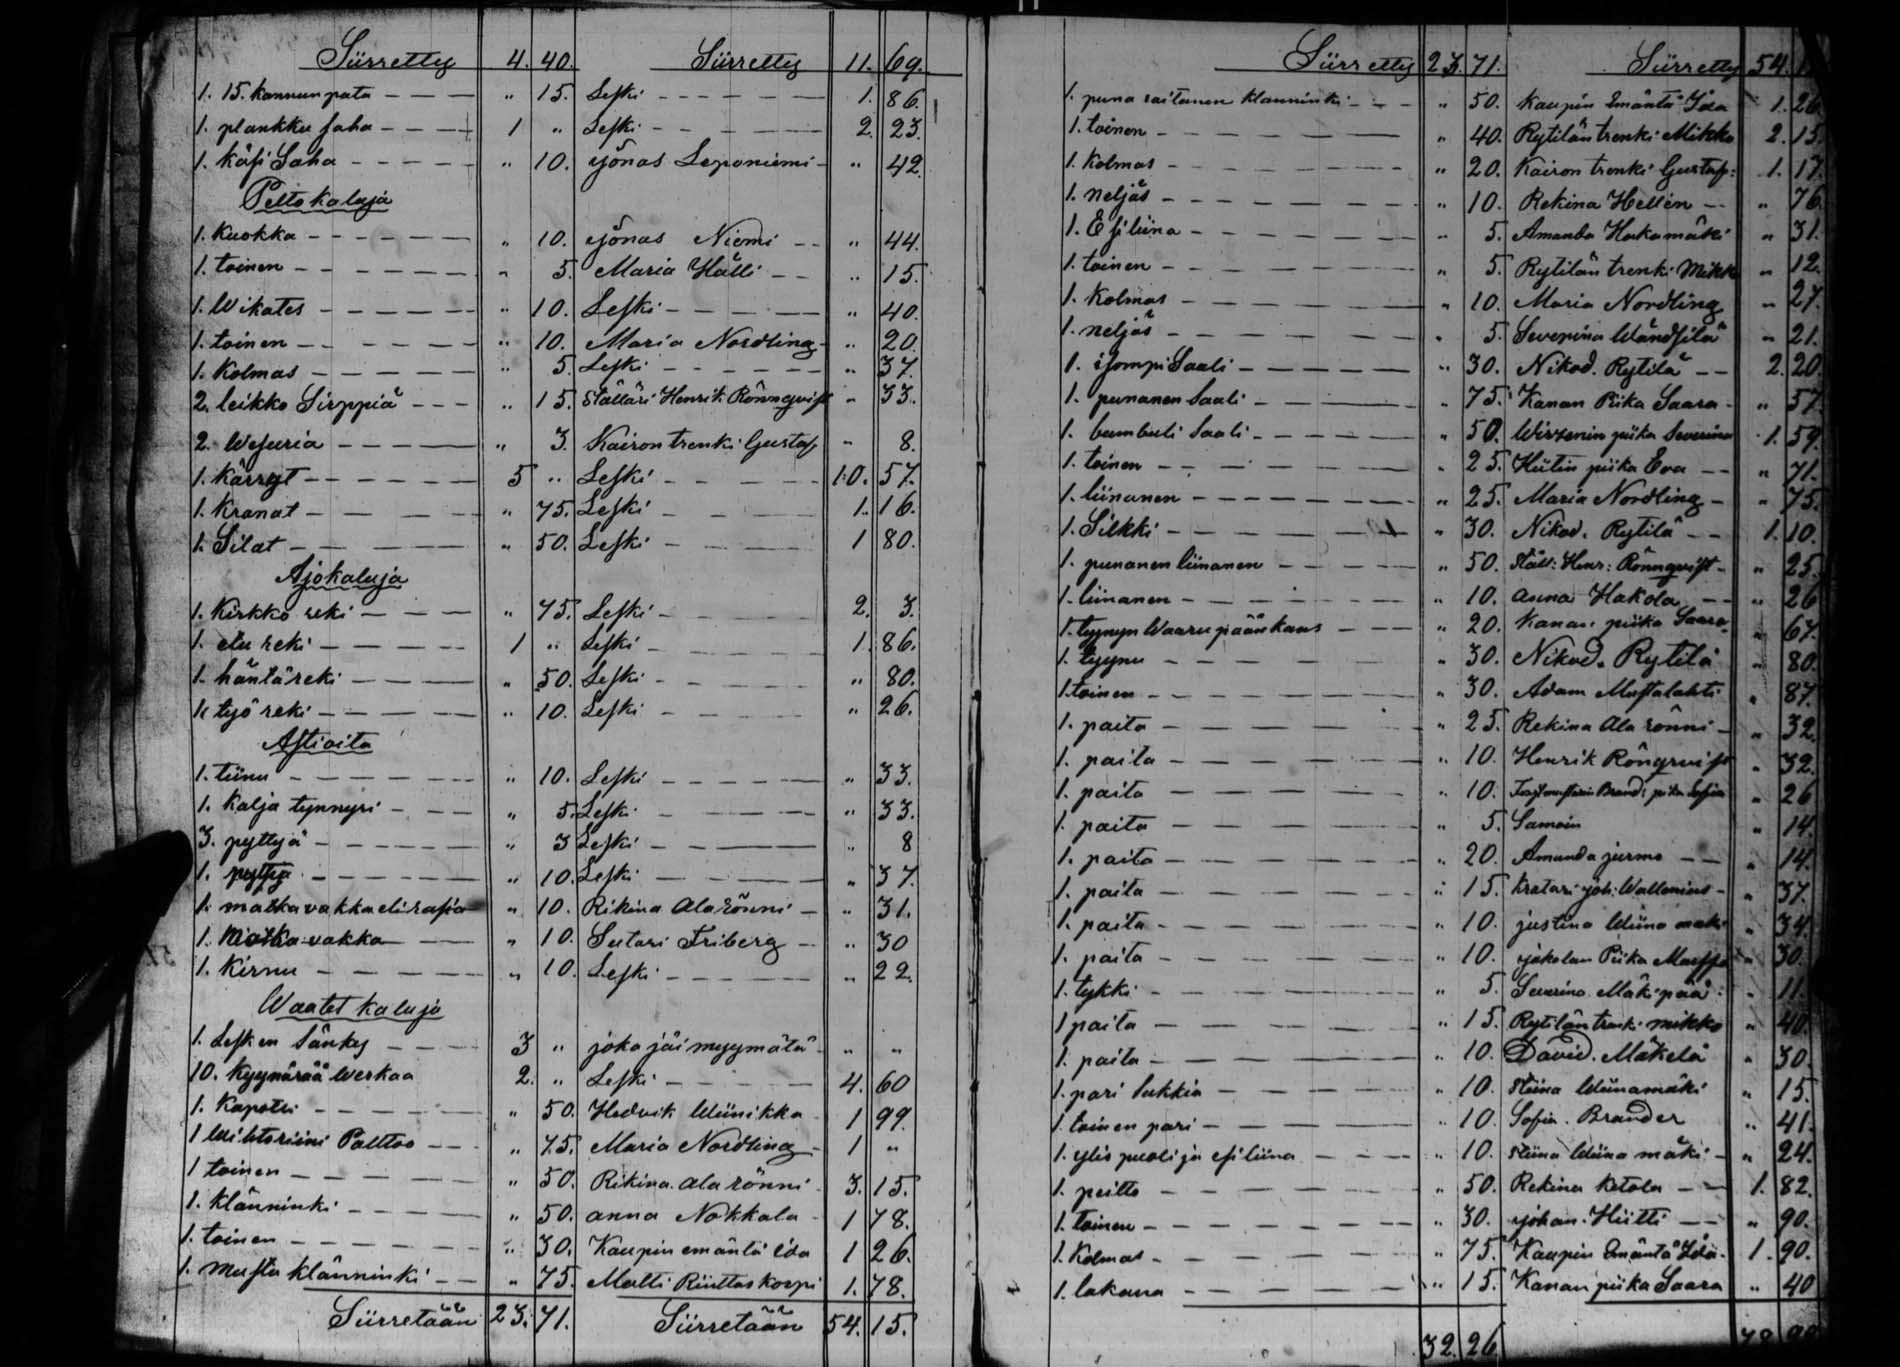 Siirretty 4. 40. Siirretty 11. 69.
1. 15. kannun pata - - - " 15. Leski - - - - - 1. 86.
1. plankku saha - - - - 1 " Leski - - - - - 2. 23.
1. käsi Saha - - - - " 10. Jonas Leponiemi - " 42.
Peltokaluja
1. kuokka - - - - - " 10. Jonas Niemi - - " 44.
1. toinen - - - - - " 5. Maria Hälli - - " 15.
1. Wikates - - - - - " 10. Leski - - - - " 40.
1. toinen - - - - - " 10. Maria Nordling - " 20.
1. Kolmas - - - - - " 5. Leski - - - - - " 37.
2. leikko Sirppiä - - - " 15. Henrik Rönnqvist - 33.
2. Wesuria - - - - " 3. Kairon trenki Gustaf " 8.
1. Kärryt - - - - - 5 " Leski - - - - 10. 57.
1. Kranat - - - - " 75. Leski - - - - 1. 16.
1. Silat - - - - " 50. Leski - - - - 1 80.
Ajokaluja
1. Kirkko reki - - - - " 75. Leski - - - - 2. 3.
1. etu reki - - - - 1 " Leski - - - - 1. 86.
1. häntäreki - - - - " 50. Leski - - - - " 80.
1. työ reki - - - - " 10. Leski - - - - " 26.
Astioita
1. tiinu - - - - - " 10. Leski - - - - " 33.
1. Kalja tynnyri - - - " 5. Leski - - - - " 33.
3. pyttyjä - - - - " 3 Leski - - - - " 8
1. pytty - - - - " 10. Leski - - - - " 37.
1. matkavakka eli rasia " 10. Rikina Alarönni - " 31.
1. Matka vakka - - " 10. Sutari Friberg - " 30
1. Kirnu - - - - " 10. Leski - - - - " 22.
Waatet kaluja
1. Lesken Sänky - - - 3 " joka jäi myymätä - " "
10. Kyynärää Werkaa 2. " Leski - - - - 4. 60
1. Kapotti - - - - " 50. Hedvik Wiinikka 1 99.
1 Wihtoriini Palttoo - - " 75. Maria Nordling - 1 "
1 toinen - - - - " 50. Rikina Alarönni - 3. 15.
1. klänninki - - - - " 50. anna Nokkala - 1 78.
1. toinen - - - - " 30. Kaupin emäntä Ida 1 26.
1. musta klänninki - - " 75. Matti Riuttaskorpi 1. 78.
Siirretään 23. 71. Siirretään 54. 15.
Siirretty 23. 71. Siirretty 54.
1. puna raitanen klanninki - - - " 50. Kaupin Emäntä Ida 1. 26.
1. toinen - - - - - " 40. Rytilän trenki Mikko 2. 15.
1. Kolmas - - - - - " 20. Kairon trenki Gustaf: 1. 17.
1. neljäs - - - - - " 10. Rekina Hellén - - " 76.
1. Esiliina - - - - - " 5. Amanda Hakamäki " 31.
1. toinen - - - - - " 5. Rytilän trenki Mikk " 12.
1. Kolmas - - - - - " 10. Maria Nordling " 27.
1. neljäs - - - - - " 5. Severina " 21.
1. isompi Saali - - - - - " 30. Nikod. Rytilä - - 2. 20.
1. punanen Saali - - - - " 75. Kanan Piika Saara - " 57.
1. bumbuli Saali - - - - " 50. piika Severina 1. 59.
1. toinen - - - - - " 25. Hiitin piika Eva - - " 71.
1. liinanen - - - - - " 25. Maria Nordling - " 75.
1. Silkki - - - - - " 30. Nikod. Rytilä - - 1. 10.
1. punanen liinanen - - - - " 50. Henr: Rönnqvist - " 25.
1. liinanen - - - - - " 10. anna Hakola - - " 26
1. tyynyn Waaru päänkans - - " 20. Kanan piika Saara " 67.
1. tyynu - - - - - " 30. Nikod. Rytilä " 80.
1. toinen - - - - - " 30. Adam Mustalahti " 87.
1. paita - - - - - " 25. Rekina Ala rönni - " 32.
1. paita - - - - - " 10. Henrik Rönqvist " 32.
1. paita - - - - - " 10. piika Sofia " 26
1. paita - - - - - " 5. Samoin " 14.
1. paita - - - - - " 20. Amanda jurmo - - " 14.
1. paita - - - - - " 15. Kratari joh: Wallenius - " 37.
1. paita - - - - - " 10. justina Wiina mäki " 34.
1. paita - - - - - " 10. jakolan Piika " 30.
1. tykki - - - - - " 5. Severina Mäkipää: " 11.
1 paita - - - - - " 15. Rytilän trenki mikko " 40.
1. paita - - - - - " 10. David. Mäkelä " 30.
1. pari sukkia - - - - " 10. Stiina Wiinamäki " 15.
1. toinen pari - - - - " 10. Sofia. Brander " 41.
1. ylis puoli ja esiliina - - - " 10. Stiina Wiina mäki - " 24.
1. peitto - - - - - " 50. Rekina Ketola - - 1. 82.
1. toinen - - - - - " 30. johan. Hiitti - - " 90.
1. Kolmas - - - - - " 75. Kaupin Emäntä Ida. 1. 90.
1. lakana - - - - - " 15. Kanan piika Saara " 40
32. 26. 78.